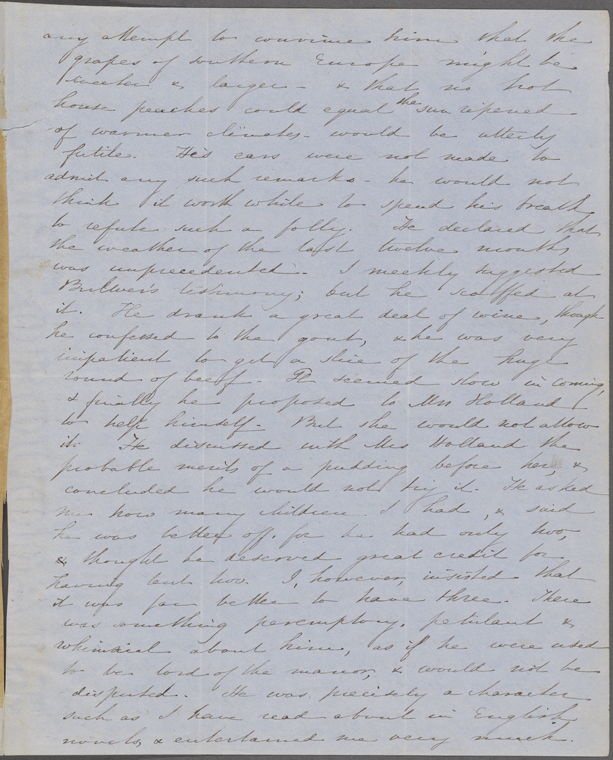 any attempt to convince him that the
grapes of southern Europe might be
sweeter & larger - & that no hot
house peaches could equal the sun ripened
of warmer climates - would be utterly
futile. His ears were not made to
admit any such remarks - he would not
think it worth while to spend his breath
to refute such a folly. He declared that
the weather of the last twelve months
was unprecedented. I meekly suggested
Bulwer's testimony; but he scoffed at
it. He drank a great deal of wine, though
he confessed to the gout, & he was very
impatient to get a slice of the huge
round of beef. It seemed slow in coming,
& finally he proposed to Mrs Holland
to help himself. But she would not allow
it. He discussed with Mrs Holland the
probable merits of a pudding before her, &
concluded he would not try it. He asked
me how many children I had, & said
he was better off, for he had only two,
& thought he deserved great credit for
having but two. I, however, insisted that
it was far better to have three. There
was something peremptory, petulant &
whimsical about him, as if he were used
to be lord of the manor, & would not be
disputed. He was precisely a character
such as I have read about in English
novels, & entertained me very much.